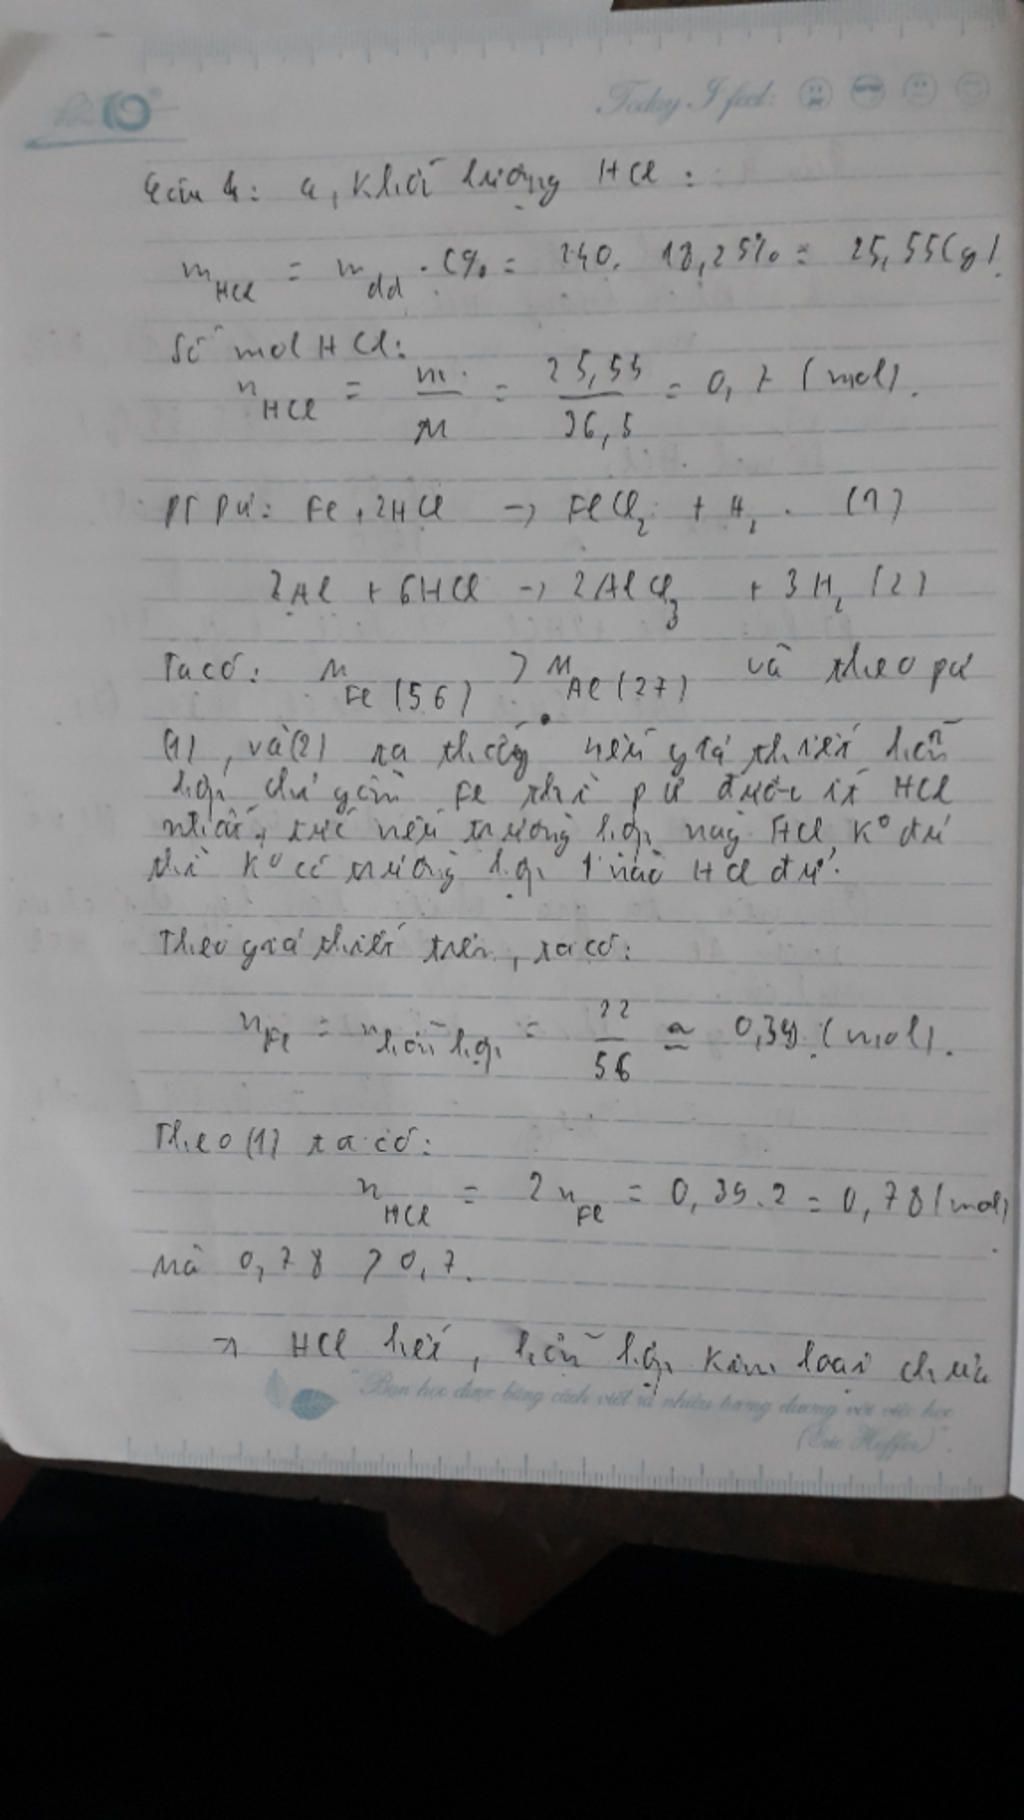 Today I feel:
Câu 4: a, Khối lượng HCl:
m HCl = m dd . C% = 140. 18,25% = 25,55(g).
Số mol HCl:
n HCl = m/M = 25,55/36,5 = 0,7 (mol).
PT pứ: Fe + 2HCl → FeCl2 + H2. (1)
2Al + 6HCl → 2AlCl3 + 3H2 (2)
Ta có: M Fe (56) > M Al (27) và theo pứ
(1), và (2) ta thấy nếu giả thiết hỗn
hợp chỉ gồm Fe thì pứ được ít HCl
nhất, tức nếu trường hợp này HCl k° dư
thì k° có trường hợp nào HCl dư.
Theo giả thiết trên, ta có:
n Fe = n hỗn hợp = 22/56 ≃ 0,39 (mol).
Theo (1) ta có:
n HCl = 2 n Fe = 0,39.2 = 0,78 (mol)
Mà 0,78 > 0,7.
→ HCl hết, hỗn hợp kim loại chưa
"Bạn học được bằng cách viết ra nhiều tương đương với việc học
(Eric Hoffer)"